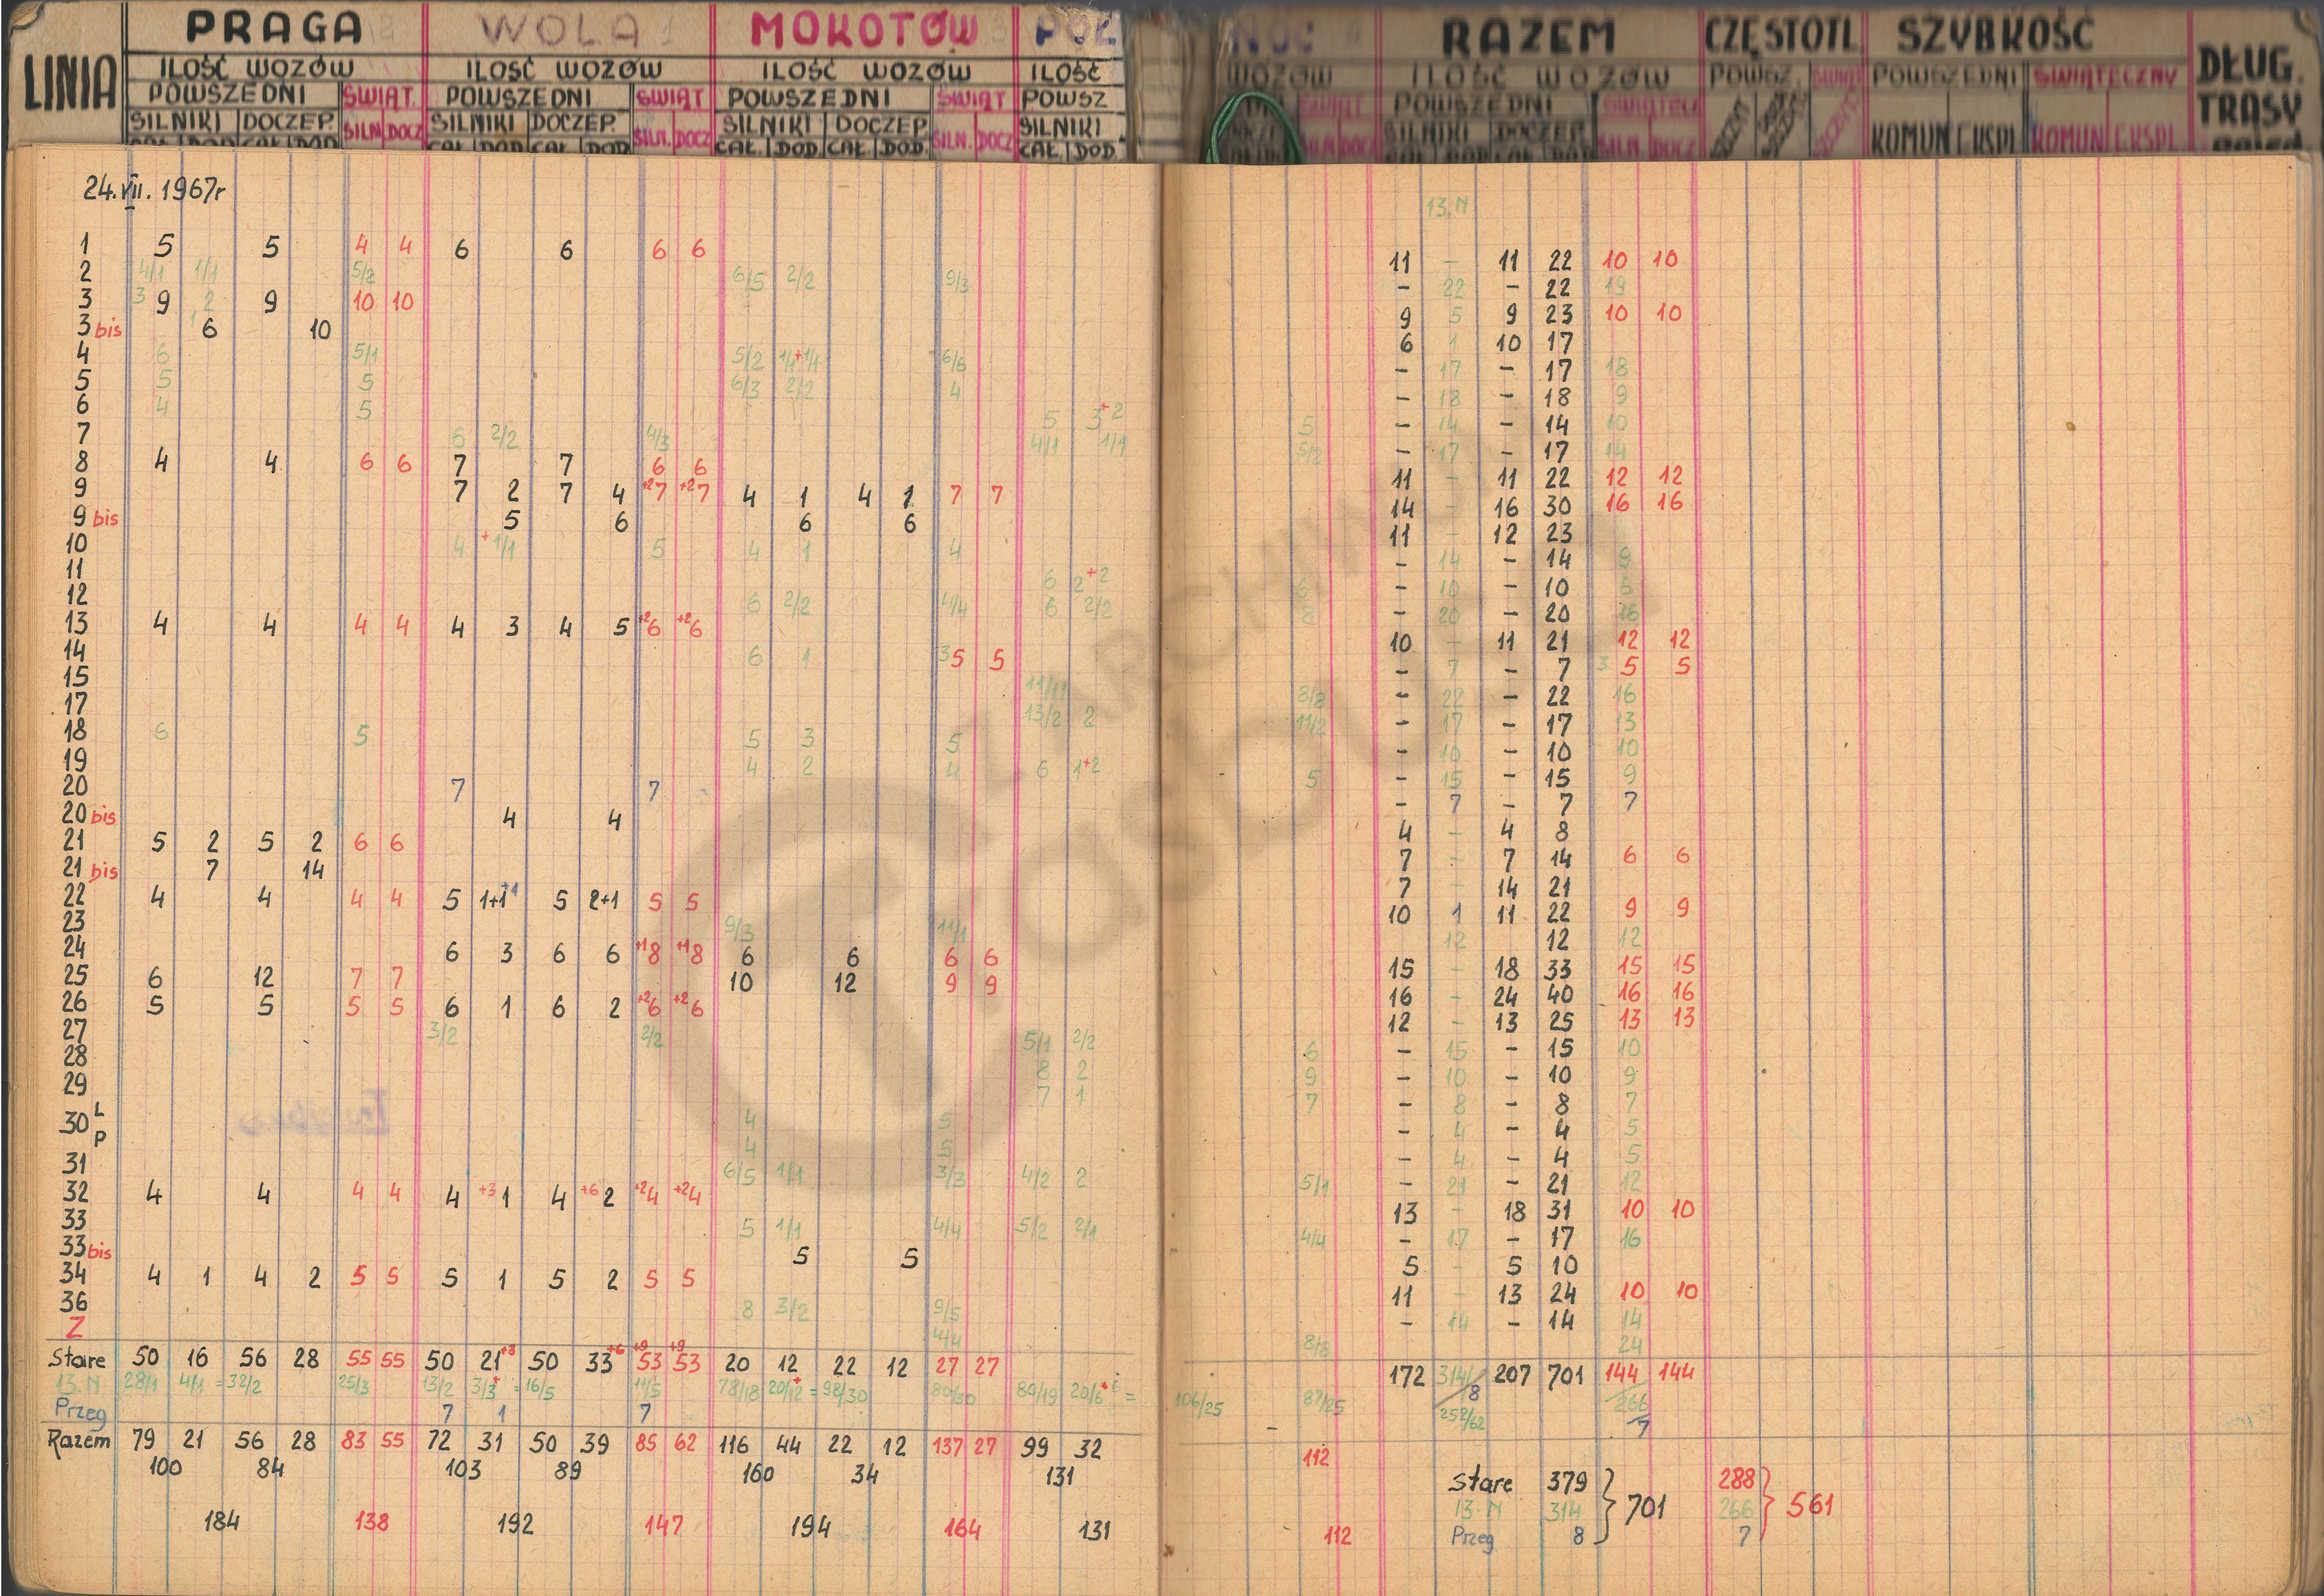 PRAGA WOLA MOKOTÓW PÓŁ NOC RAZEM CZĘSTOTL. SZYBKOŚĆ
LINIA ILOŚĆ WOZÓW ILOŚĆ WOZÓW ILOŚĆ WOZÓW ILOŚĆ WOZÓW ILOŚĆ WOZÓW POWSZ. ŚWIĄT POWSZEDNI ŚWIĄTECZNY DŁUG. TRASY
POWSZEDNI ŚWIĄT. POWSZEDNI ŚWIĄT POWSZEDNI ŚWIĄT POWSZ ŚWIĄT POWSZEDNI ŚWIĄTECZ
SILNIKI DOCZEP. SILN. DOCZ SILNIKI DOCZEP. SILN. DOCZ SILNIKI DOCZEP. SILN. DOCZ SILNIKI DOCZEP. SILN. DOCZ SILNIKI DOCZEP. SILN. DOCZ KOMUN EKSPL. KOMUN EKSPL.
CAŁ. DOD. CAŁ. DOD. CAŁ. DOD. CAŁ. DOD. CAŁ. DOD. CAŁ. DOD. CAŁ. DOD.
24.VII.1967r
13.N
1 5 5 4 4 6 6 6 6 11 – 11 22 10 10
2 4/1 1/1 5/2 6/5 2/2 9/3 – 22 – 22 19
3 3 9 2 9 10 10 9 5 9 23 10 10
3 bis 1 6 10 6 1 10 17
4 6 5/1 5/2 1/1+1/1 6/6 – 17 – 17 18
5 5 5 6/3 2/2 4 – 18 – 18 9
6 4 5 5 3+2 5 – 14 – 14 10
7 6 2/2 4/3 4/1 1/1 5/2 – 17 – 17 14
8 4 4 6 6 7 7 6 6 11 – 11 22 12 12
9 7 2 7 4 +27 +27 4 1 4 1 7 7 14 – 16 30 16 16
9 bis 5 6 6 6 11 – 12 23
10 4 +1/1 5 4 1 4 – 14 – 14 9
11 6 2+2 6 – 10 – 10 6
12 6 2/2 4/4 6 2/2 8 – 20 – 20 16
13 4 4 4 4 4 3 4 5 +26 +26 10 – 11 21 12 12
14 6 1 3 5 5 – 7 – 7 3 5 5
15 11/11 8/2 – 22 – 22 16
17 13/2 2 11/2 – 17 – 17 13
18 6 5 5 3 5 – 10 – 10 10
19 4 2 4 6 1+2 5 – 15 – 15 9
20 7 7 – 7 – 7 7
20 bis 4 4 4 – 4 8
21 5 2 5 2 6 6 7 – 7 14 6 6
21 bis 7 14 7 – 14 21
22 4 4 4 4 5 1+1+1 5 2+1 5 5 10 1 11 22 9 9
23 9/3 11/1 12 12 12
24 6 3 6 6 +18 +18 6 6 6 6 15 – 18 33 15 15
25 6 12 7 7 10 12 9 9 16 – 24 40 16 16
26 5 5 5 5 6 1 6 2 +26 +26 12 – 13 25 13 13
27 3/2 2/2 5/1 2/2 6 – 15 – 15 10
28 8 2 9 – 10 – 10 9
29 7 1 7 – 8 – 8 7
30 L 4 5 – 4 – 4 5
P 4 5 – 4 – 4 5
31 6/5 1/1 3/3 4/2 2 5/1 – 21 – 21 12
32 4 4 4 4 4 +3 1 4 +6 2 +24 +24 13 – 18 31 10 10
33 5 1/1 4/4 5/2 2/1 4/4 – 17 – 17 16
33 bis 5 5 5 – 5 10
34 4 1 4 2 5 5 5 1 5 2 5 5 11 – 13 24 10 10
36 8 3/2 9/5 – 14 – 14 14
Z 4/4 8/8 24
Stare 50 16 56 28 55 55 50 21+3 50 33+6 +9 53 +9 53 20 12 22 12 27 27 172 314/8 207 701 144 144
13.N 28/1 4/1 =32/2 25/3 13/2 3/3+ =16/5 11/5 78/18 20/12+ =98/30 80/30 80/19 20/6+ = 106/25 87/25 252/62 266
Przeg 7 1 7 – 7
Razem 79 21 56 28 83 55 72 31 50 39 85 62 116 44 22 12 137 27 99 32 112
100 84 103 89 160 34 131
184 138 192 147 194 164 131 112
Stare 379 288
13.N 314 } 701 266 } 561
Przeg 8 7
Z ARCHIWUM